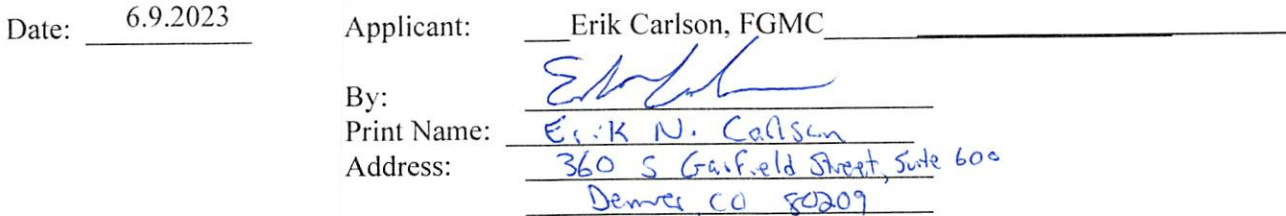 Date: 6.9.2023 Applicant: Erik Carlson, FGMC
By:
Print Name: Erik N. Carlson
Address: 360 S Garfield Street, Suite 600
Denver CO 80209